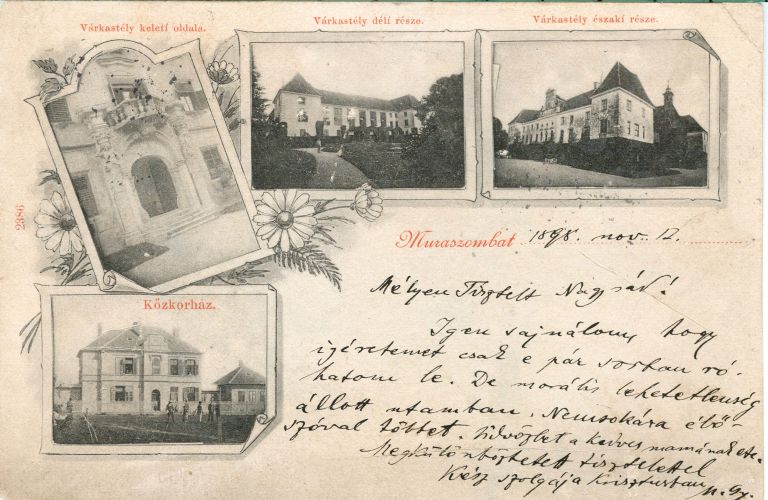 Várkastély keleti oldala.
Várkastély déli része.
Várkastély északi része.
2386
Muraszombat 1898. nov. 12.
Közkorház.
Mélyen Tisztelt Nagysád!
Igen sajnálom, hogy
igéretemet csak e pár sorban ró-
hatom le. De morális lehetetlenség
állott utamban. Nemsokára élő-
szóval többet. Üdvözlet a kedves mamának etc.
Megkülönböztetett tisztelettel
Kész szolgája